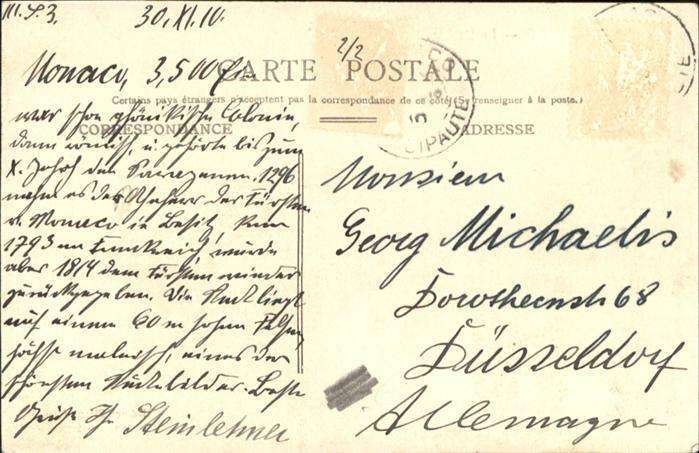 III. S. 3.
30. XI. 10.
2/2
CARTE POSTALE
Certains pays étrangers n'acceptent pas la correspondance de ce côté (Se renseigner à la poste.)
CORRESPONDANCE
ADRESSE
Monaco, 3,500
war schon phönikische Colonie,
dann römisch, u. gehörte bis zum
X. Jahrh den Sarazenen. 1296
nahm es der Ahnherr der Fürsten
v. Monaco in Besitz, kam
1793 an Frankreich, wurde
aber 1814 dem Fürsten wieder
zurückgegeben. Die Stadt liegt
auf einem 60 m hohen Felsen,
höchst malerisch, eines der
schönsten Städtebilder. Beste
Grüße Steinlehner
Monsieur
Georg Michaelis
Dorotheenstr 68
Düsseldorf
Allemagne